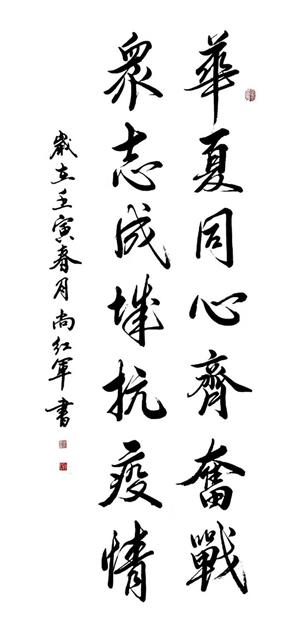 華夏同心齊奮戰
眾志成城抗疫情
歲在壬寅春月尚紅軍書